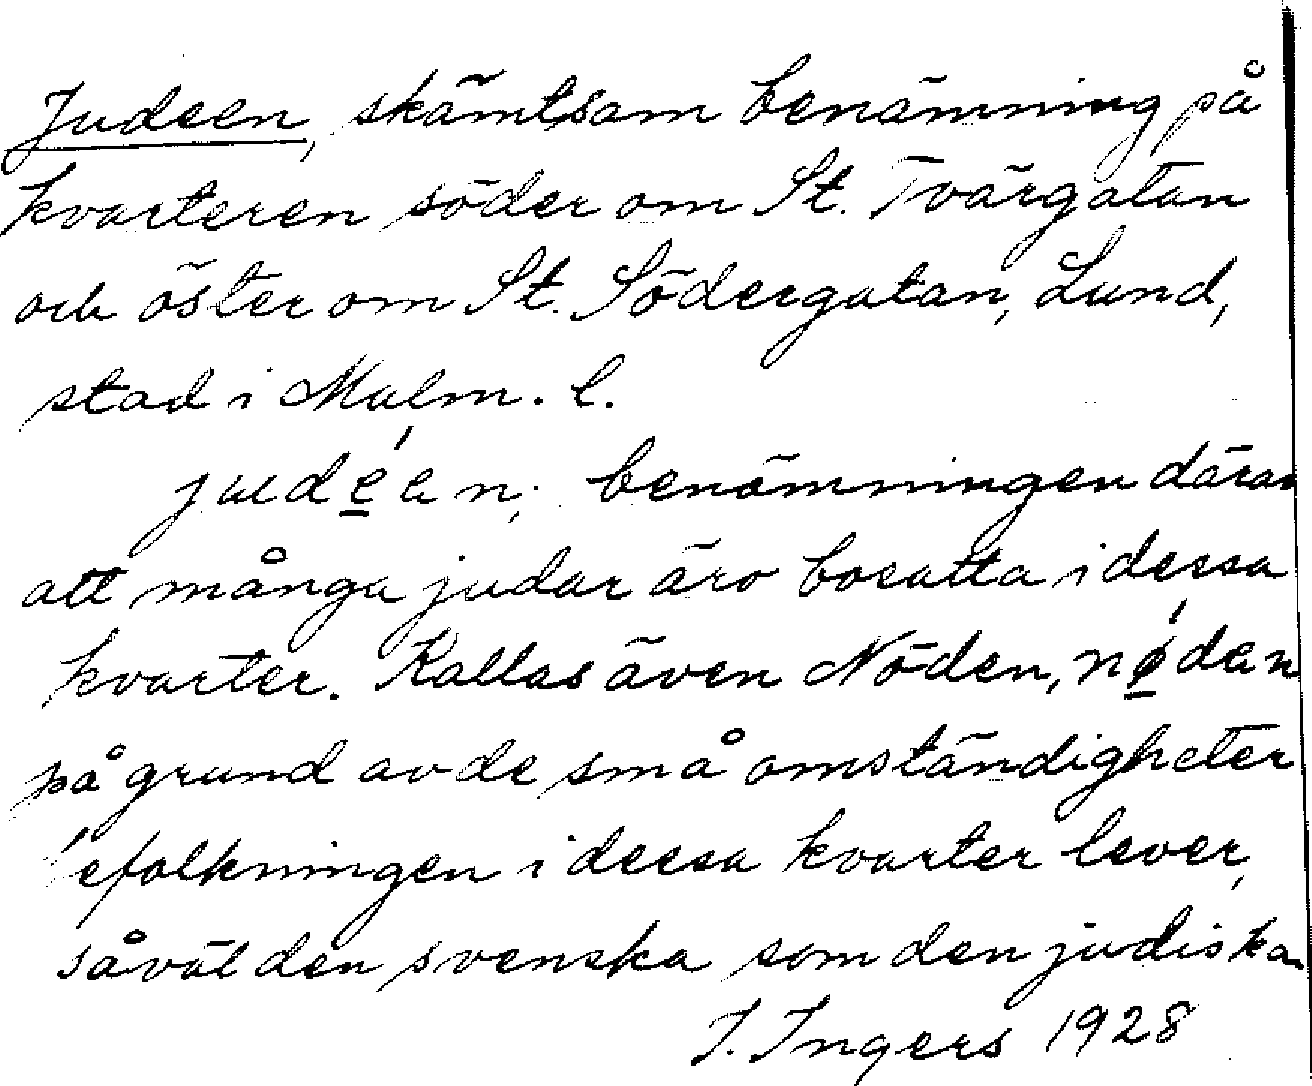 Judeen, skämtsam benämning på
kvarteren söder om St. Tvärgatan
och öster om St. Södergatan, Lund,
stad i Malm. l.
judeen; benämningen därav
att många judar äro bosatta i dessa
kvarter. Kallas även Nöden, nødan
på grund av de små omständigheter
befolkningen i dessa kvarter lever,
såväl den svenska som den judiska.
I. Ingers 1928